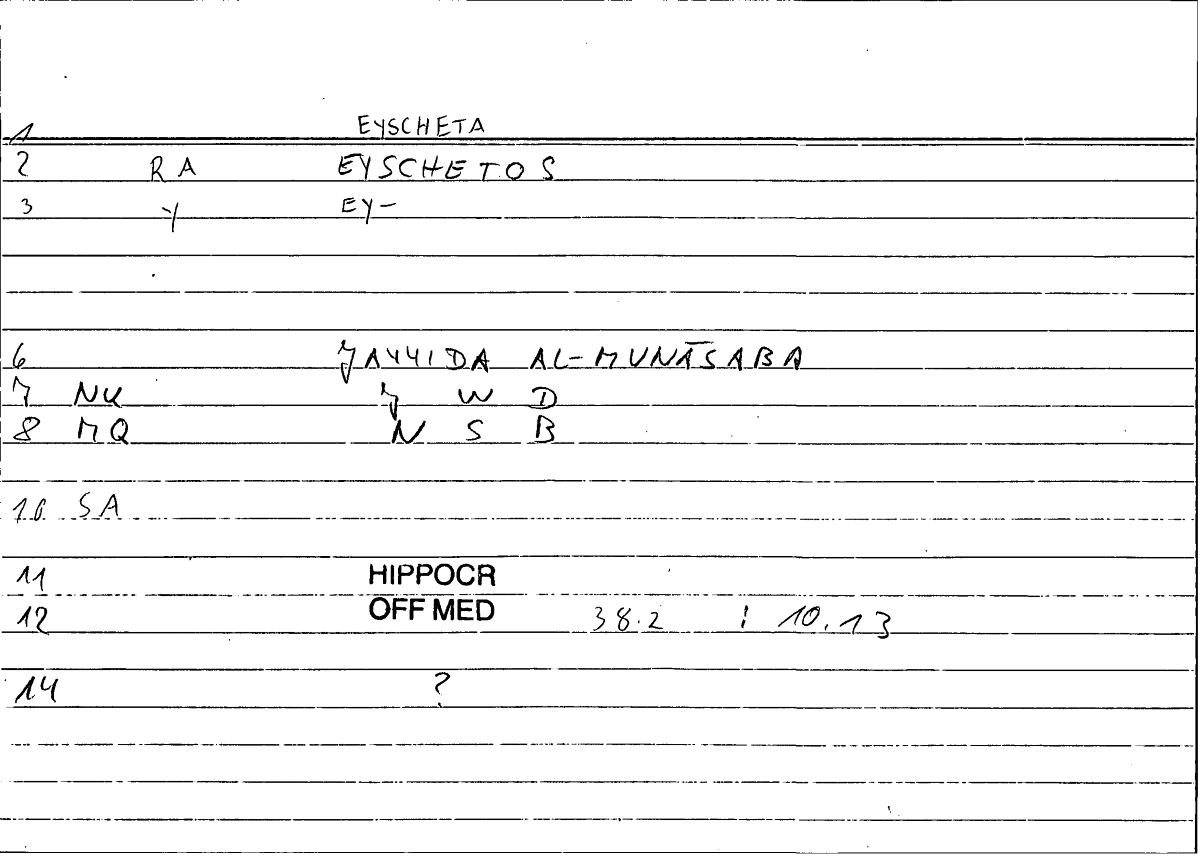 1 EYSCHETA
2 RA EYSCHETOS
3 Y EY-
6 JAYYIDA AL-MUNĀSABA
7 NU J W D
8 MQ N S B
10 SA
11 HIPPOCR
12 OFF MED 38.2 : 10.13
14 ?